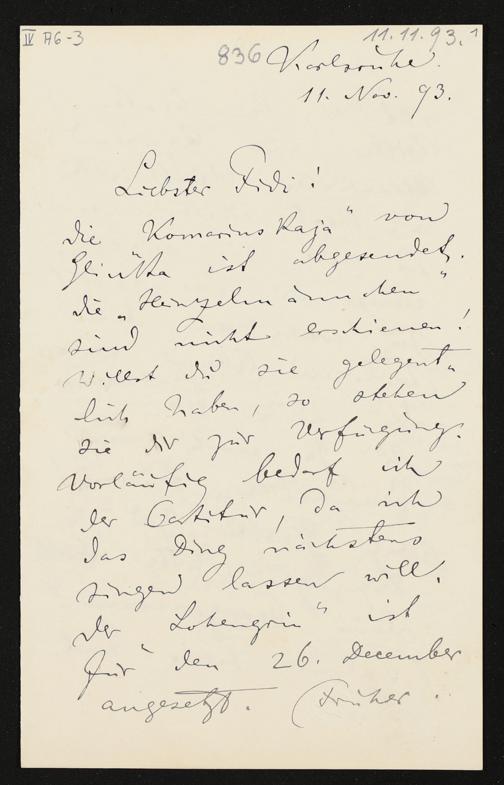 IV A6-3
11.11.93.¹
836
Karlsruhe.
11. Nov. 93.
Liebster Fidi!
die Komarinskaja" von
Glinka ist abgesendet.
die „Heinzelmännchen"
sind nicht erschienen!
Willst du sie gelegent„
lich haben, so stehen
sie dir zur Verfügung.
Vorläufig bedarf ich
der Partitur, da ich
das Ding nächstens
singen lassen will.
Der „Lohengrin" ist
für den 26. December
angesetzt. (Früher